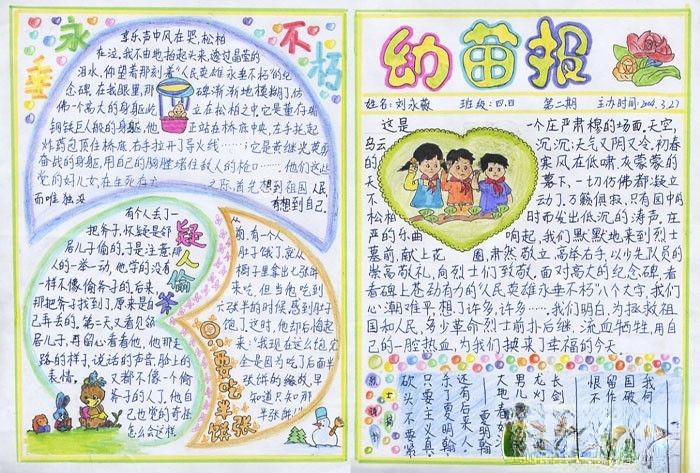 永垂不朽
哀乐声中风在哭,松柏
在泣。我不由地抬起头来,透过晶莹的
泪水,仰望着那刻着“人民英雄永垂不朽”的纪
念碑,在我眼里,那碑渐渐地模糊了,仿
佛一个高大的身躯屹立在松柏之中,它是董存瑞
钢铁巨人般的身躯,他正站在桥底中央,左手托起
炸药包顶住桥底,右手拉开了导火线……;它是黄继光英勇
奋战的身躯,用自己的胸膛堵住敌人的枪口……他们这些
党的好儿女,在生死存亡之际,首先想到祖国人民
而唯独没有想到自己。
疑人偷斧
有个人丢了一
把斧子,怀疑是邻
居儿子偷的,于是注意那
人的一举一动,他守的没有
一样不像偷斧子的,后来,
那把斧子找到了,原来是自
己弄丢的,第二天又看见邻
居儿子,再留心看看他,他那走
路的样子,说话的声音,脸上的
表情,又都不像一个偷
斧子的人了,他自
己也觉的奇怪
怎么会这样。
只要吃半张饼
从
前,有一个人
肚子饿了,就从
橱子里拿出七张饼
来吃,但当他吃到
六张半的时候,感到肚子
饱了,这时,他却后悔起
来:“我现在这么饱,完
全是因为吃了后面半
张饼的缘故,早
知道只吃那
半张饼!”
幼苗报
姓名:刘永薇 班级:四.四 第二期 主办时间:2004.3.27
这是一个庄严肃穆的场面,天空,
乌云沉沉;天气又阴又冷,初春
的寒风在低啸,灰蒙蒙的
天幕下,一切仿佛都凝立
不动了,万籁俱寂,只有园中的
松柏时而发出低沉的涛声,在
严的乐曲响起,我们默默地来到烈士
墓前,献上花圈,肃然敬立,高举右手,以少先队员的
崇高敬礼,向烈士们致敬,面对高大的纪念碑,看
着碑上苍劲有力的“人民英雄永垂不朽”八个大字,我们
心潮难平,想了许多,许多……,我们明白,为拯救祖
国和人民,多少革命烈士前扑后继,流血牺牲,用自
己的一腔热血,为我们换来了幸福的今天。
我何
国破
留作
恨不
长剑
龙灯
男儿
大地
夏明翰
还有后来人
杀了夏明翰
只要主义真
砍头不要紧